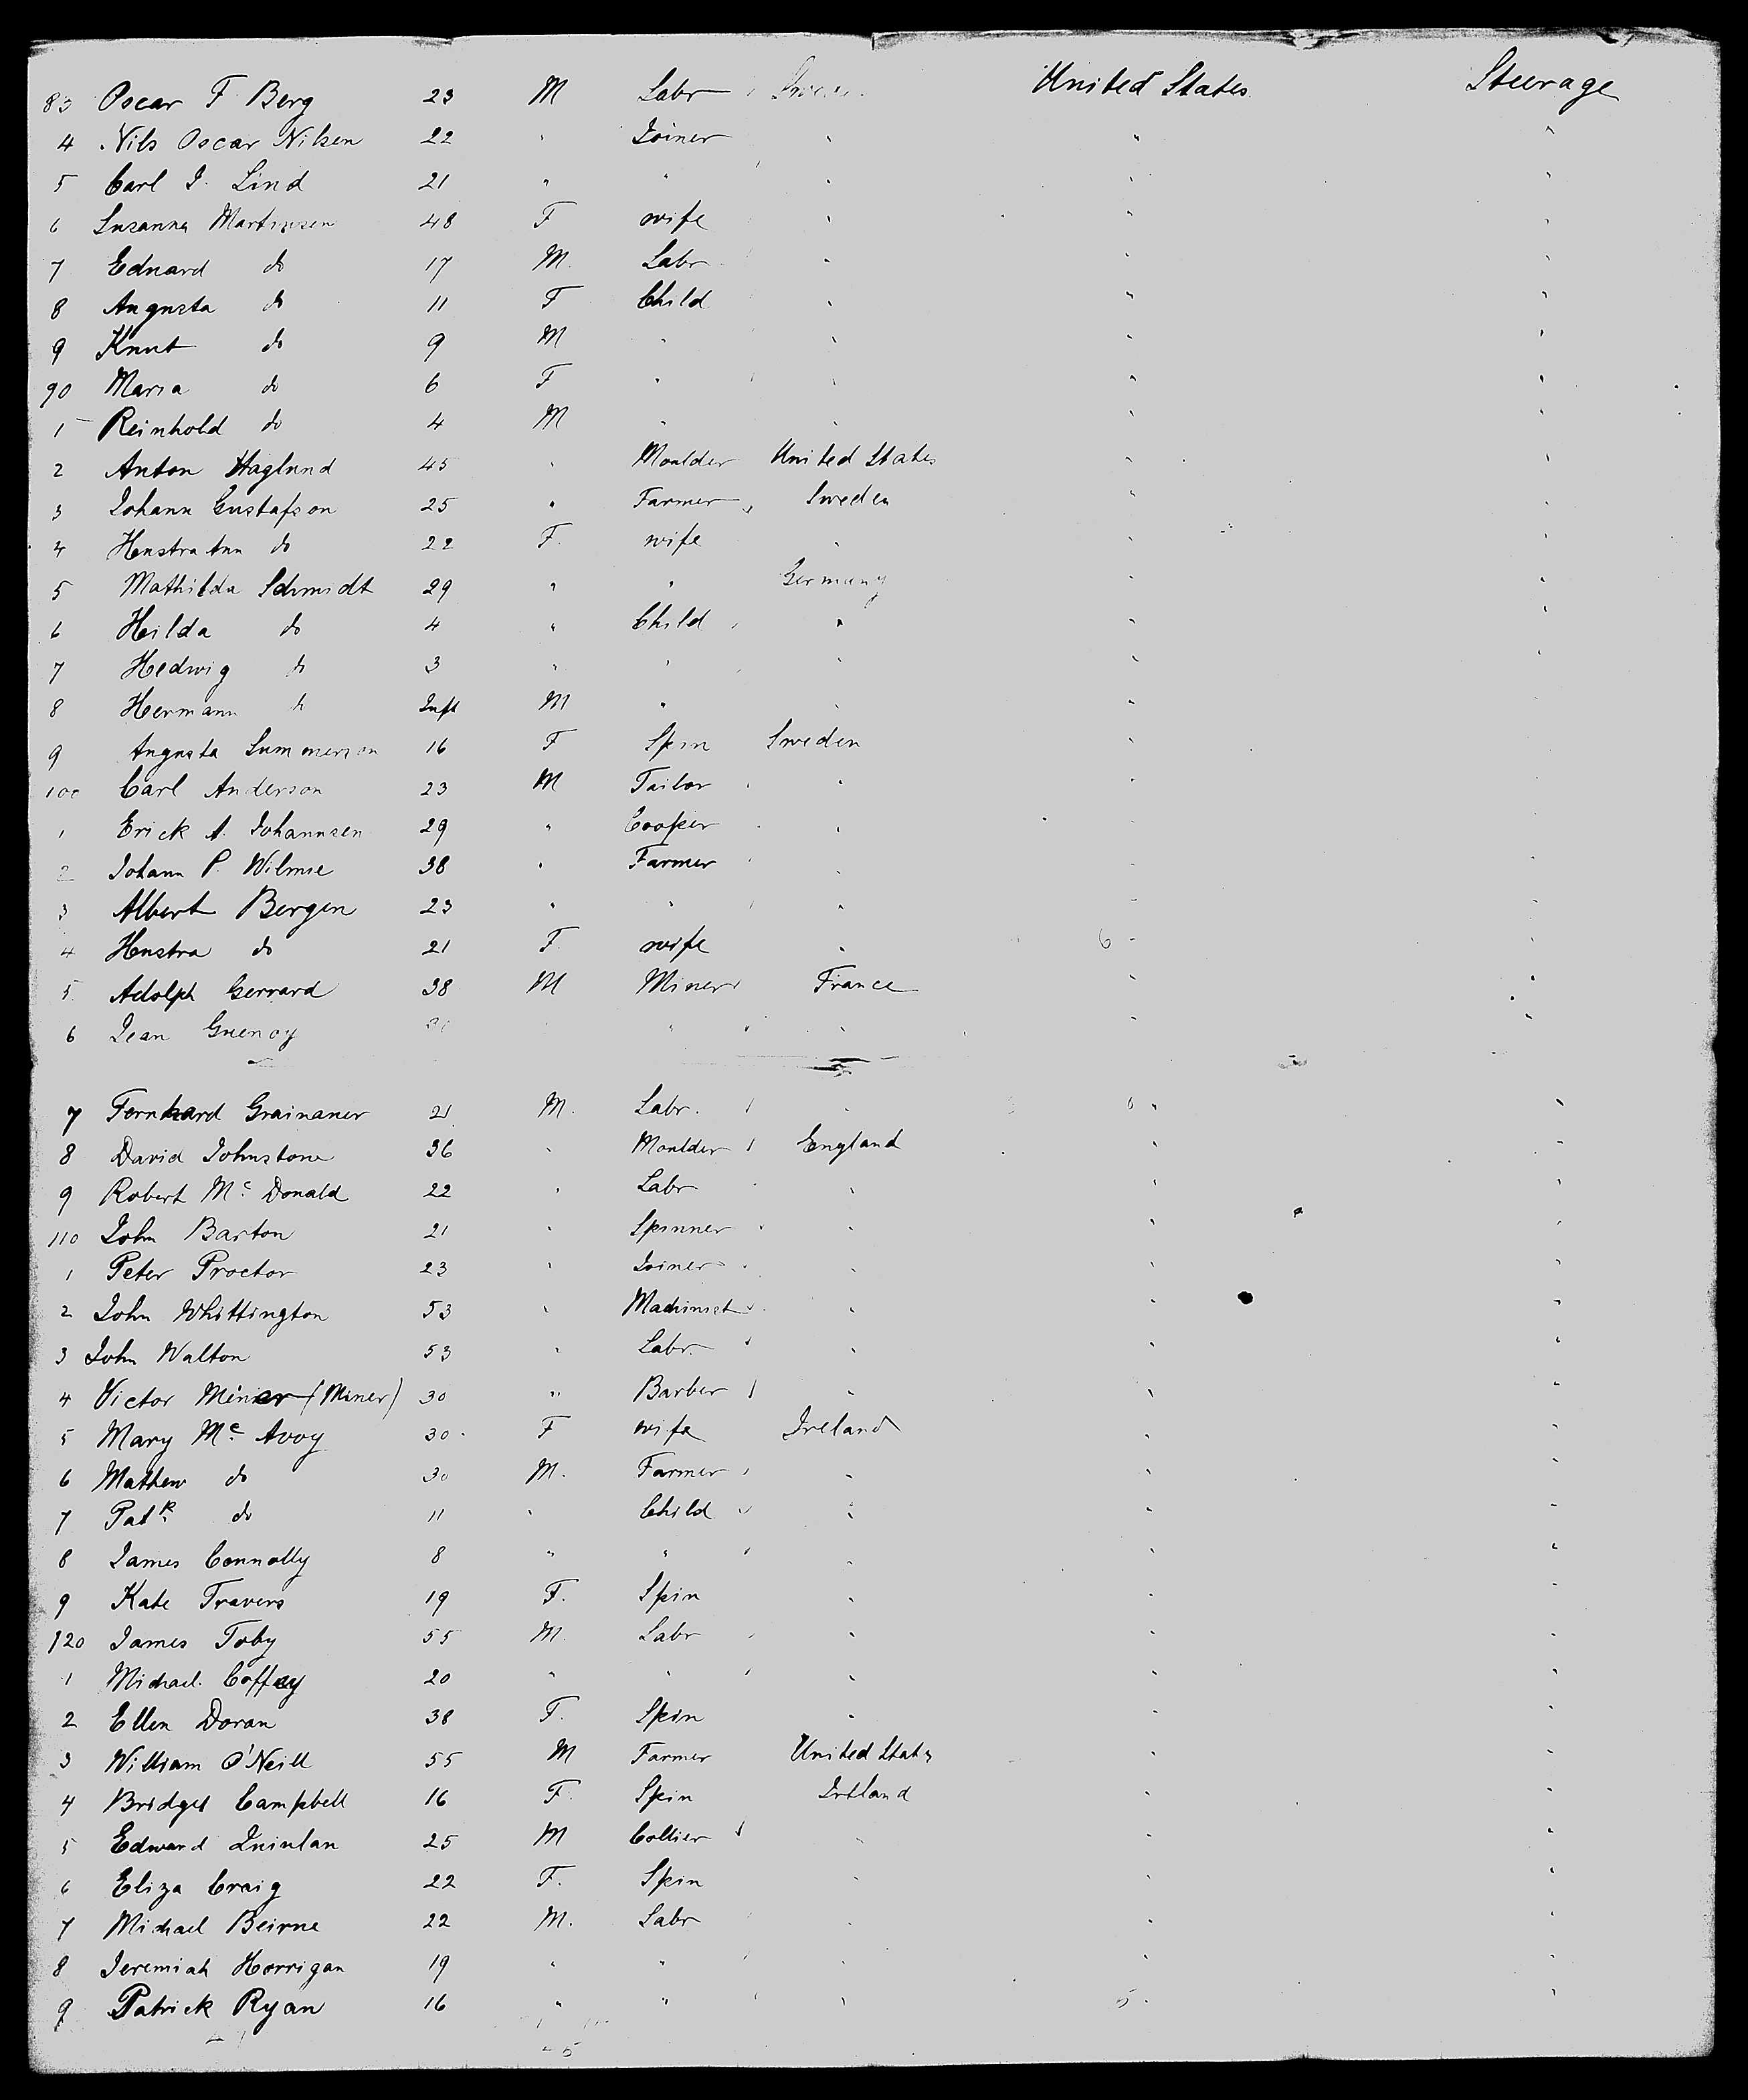 83 Oscar F Berg 23 M Labr Sweden United States Steerage
4 Nils Oscar Nilsen 22 " Joiner " " "
5 Carl J. Lind 21 " " " " "
6 Susanna Martinsen 48 F wife " " "
7 Eduard do 17 M. Labr " " "
8 Augusta do 11 F Child " " "
9 Knut do 9 M " " " "
90 Maria do 6 F " " " "
1 Reinhold do 4 M " " " "
2 Anton Haglund 45 " Moulder United States " "
3 Johann Gustafson 25 " Farmer Sweden "
4 do 22 F. wife " " "
5 Mathilda Schmidt 29 " " Germany " "
6 Hilda do 4 " Child " " "
7 Hedwig do 3 " " " " "
8 Hermann do Inft M " " "
9 Augusta Summerson 16 F Spin Sweden "
100 Carl Anderson 23 M Tailor " "
1 Erick A. Johannsen 29 " Cooper " "
2 Johann P. 38 " Farmer " " "
3 Albert Bergen 23 " " " " "
4 do 21 F. wife " 6 " "
5. Adolph Gerrard 38 M Miner France " "
6 Jean Guenoy " " " "
7 Grainaner 21 M. Labr. " " "
8 David Johnstone 36 " Moulder England " "
9 Robert Mc Donald 22 " Labr " " "
110 John Barton 21 " Spinner " " "
1 Peter Proctor 23 " Joiner " " "
2 John Whittington 53 " Machinist " " "
3 John Walton 53 " Labr. " " "
4 Victor Miner (Miner) 30 " Barber " " "
5 Mary Mc Avoy 30 F wife Ireland " "
6 Mathew do 30 M. Farmer " " "
7 Patk do 11 " Child " " "
8 James Connolly 8 " " " " "
9 Kate Travers 19 F. Spin " " "
120 James Toby 55 M. Labr " " "
1 Michael Coffey 20 " " " " "
2 Ellen Doran 38 F. Spin " " "
3 William O'Neill 55 M Farmer United States " "
4 Bridget Campbell 16 F. Spin Ireland " "
5 Edward Quinlan 25 M Collier " " "
6 Eliza Craig 22 F. Spin " " "
7 Michael Beirne 22 M. Labr " " "
8 Jeremiah Horrigan 19 " " " " "
9 Patrick Ryan 16 " " " 5 "